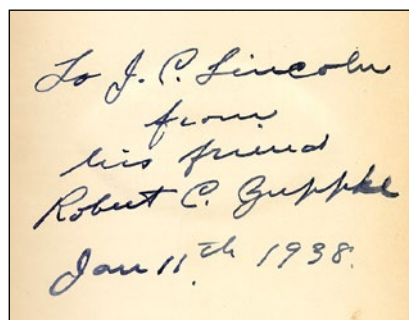 To J. C. Lincoln
from
his friend
Robert C. Zuppke
Jan 11th 1938.